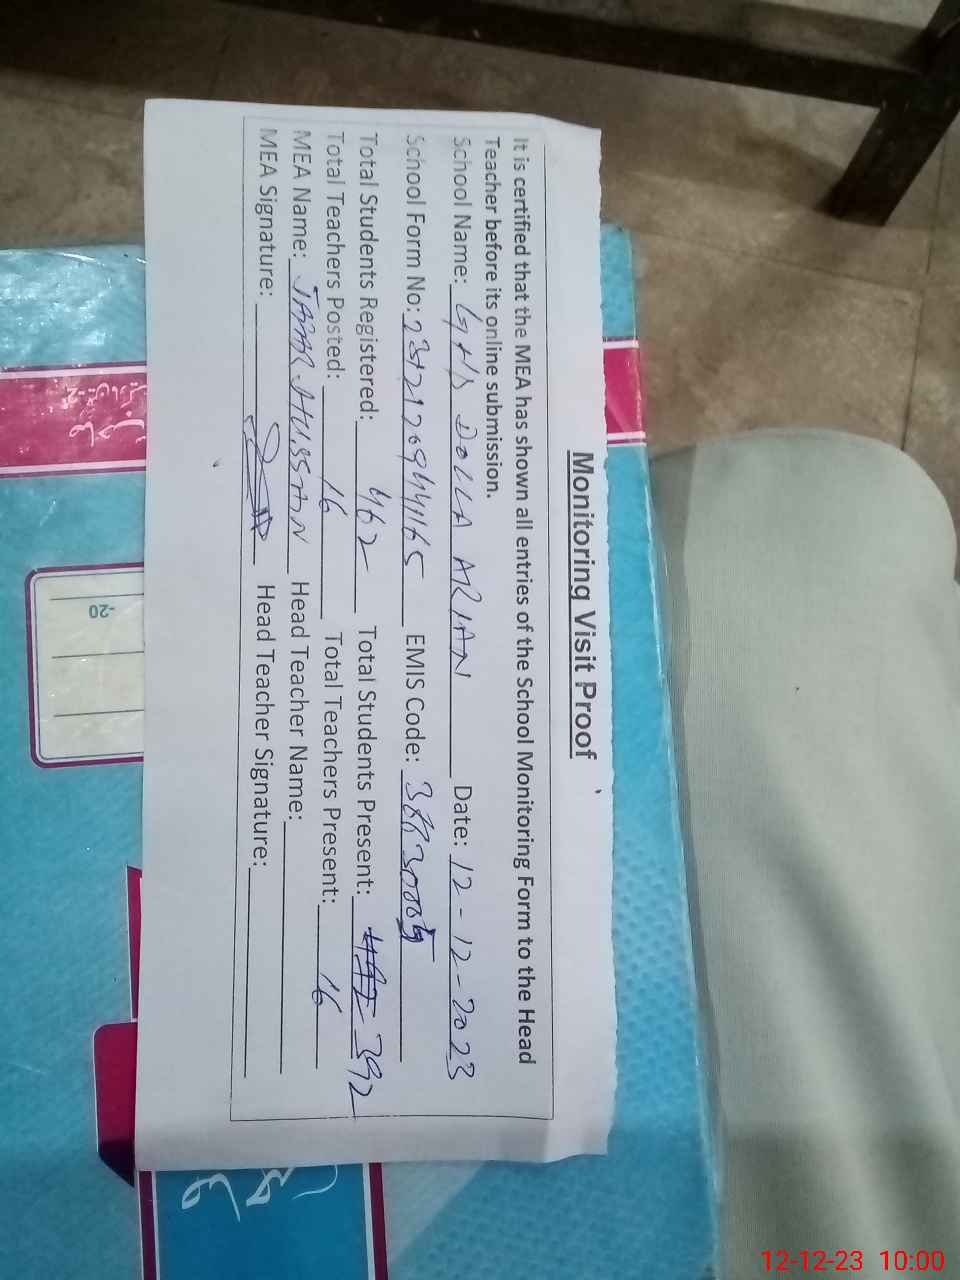 Monitoring Visit Proof
It is certified that the MEA has shown all entries of the School Monitoring Form to the Head
Teacher before its online submission.
School Name: GHS DOLLA ARIAN Date: 12-12-2023
School Form No: EMIS Code:
Total Students Registered: 462 Total Students Present: 392
Total Teachers Posted: 16 Total Teachers Present: 16
MEA Name: Head Teacher Name:
MEA Signature: Head Teacher Signature:
-20
12-12-23 10:00